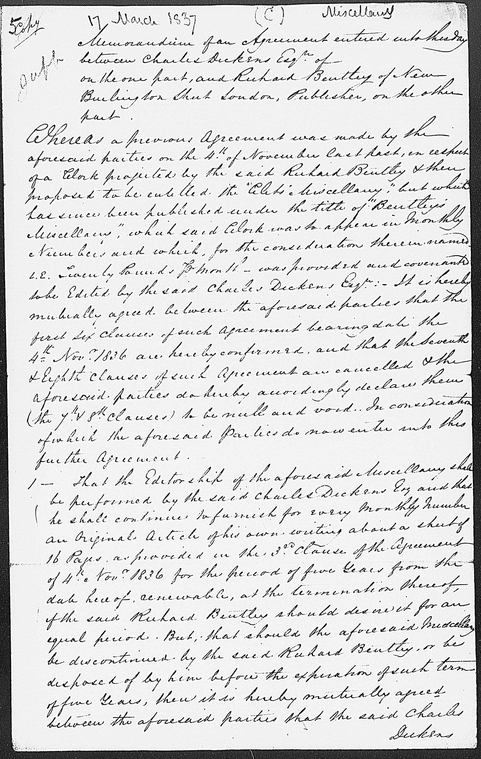 Copy
17 March 1837 (C) Miscellany
Memorandum of an Agreement entered into this day
between Charles Dickens Esqre of
on the one part, and Richard Bentley of New
Burlington Street London, Publisher, on the other
part.
Whereas a previous Agreement was made by the
aforesaid parties on the 4th of November last past, in respect
of a Work projected by the said Richard Bentley & then
proposed to be entitled the "Wits' Miscellany", but which
has since been published under the title of "Bentley's
Miscellany", which said Work was to appear in Monthly
Numbers and which, for the consideration therein named
i.e. Twenty Pounds Pr Month - was provided and covenanted
to be Edited by the said Charles Dickens Esqre:- It is hereby
mutually agreed between the aforesaid parties that the
first six clauses of such Agreement bearing date the
4th Novr 1836 are hereby confirmed, and that the seventh
& Eighth clauses of such Agreement are cancelled & the
aforesaid parties do hereby accordingly declare them
(the 7th & 8th clauses) to be null and void. In consideration
of which the aforesaid Parties do now enter into this
further Agreement.
1 - That the Editorship of the aforesaid Miscellany shall
be performed by the said Charles Dickens Esq and that
he shall continue to furnish for every Monthly Number
an Original Article of his own writing about a sheet of
16 Pages. as provided in the 3rd Clause of the Agreement
of 4th Novr 1836 for the period of five Years from the
date hereof. renewable, at the termination thereof,
if the said Richard Bentley should desire it for an
equal period. But, that should the aforesaid Miscellany
be discontinued by the said Richard Bentley, or be
disposed of by him before the expiration of such term
of five Years, then it is hereby mutually agreed
between the aforesaid parties that the said Charles
Dickens